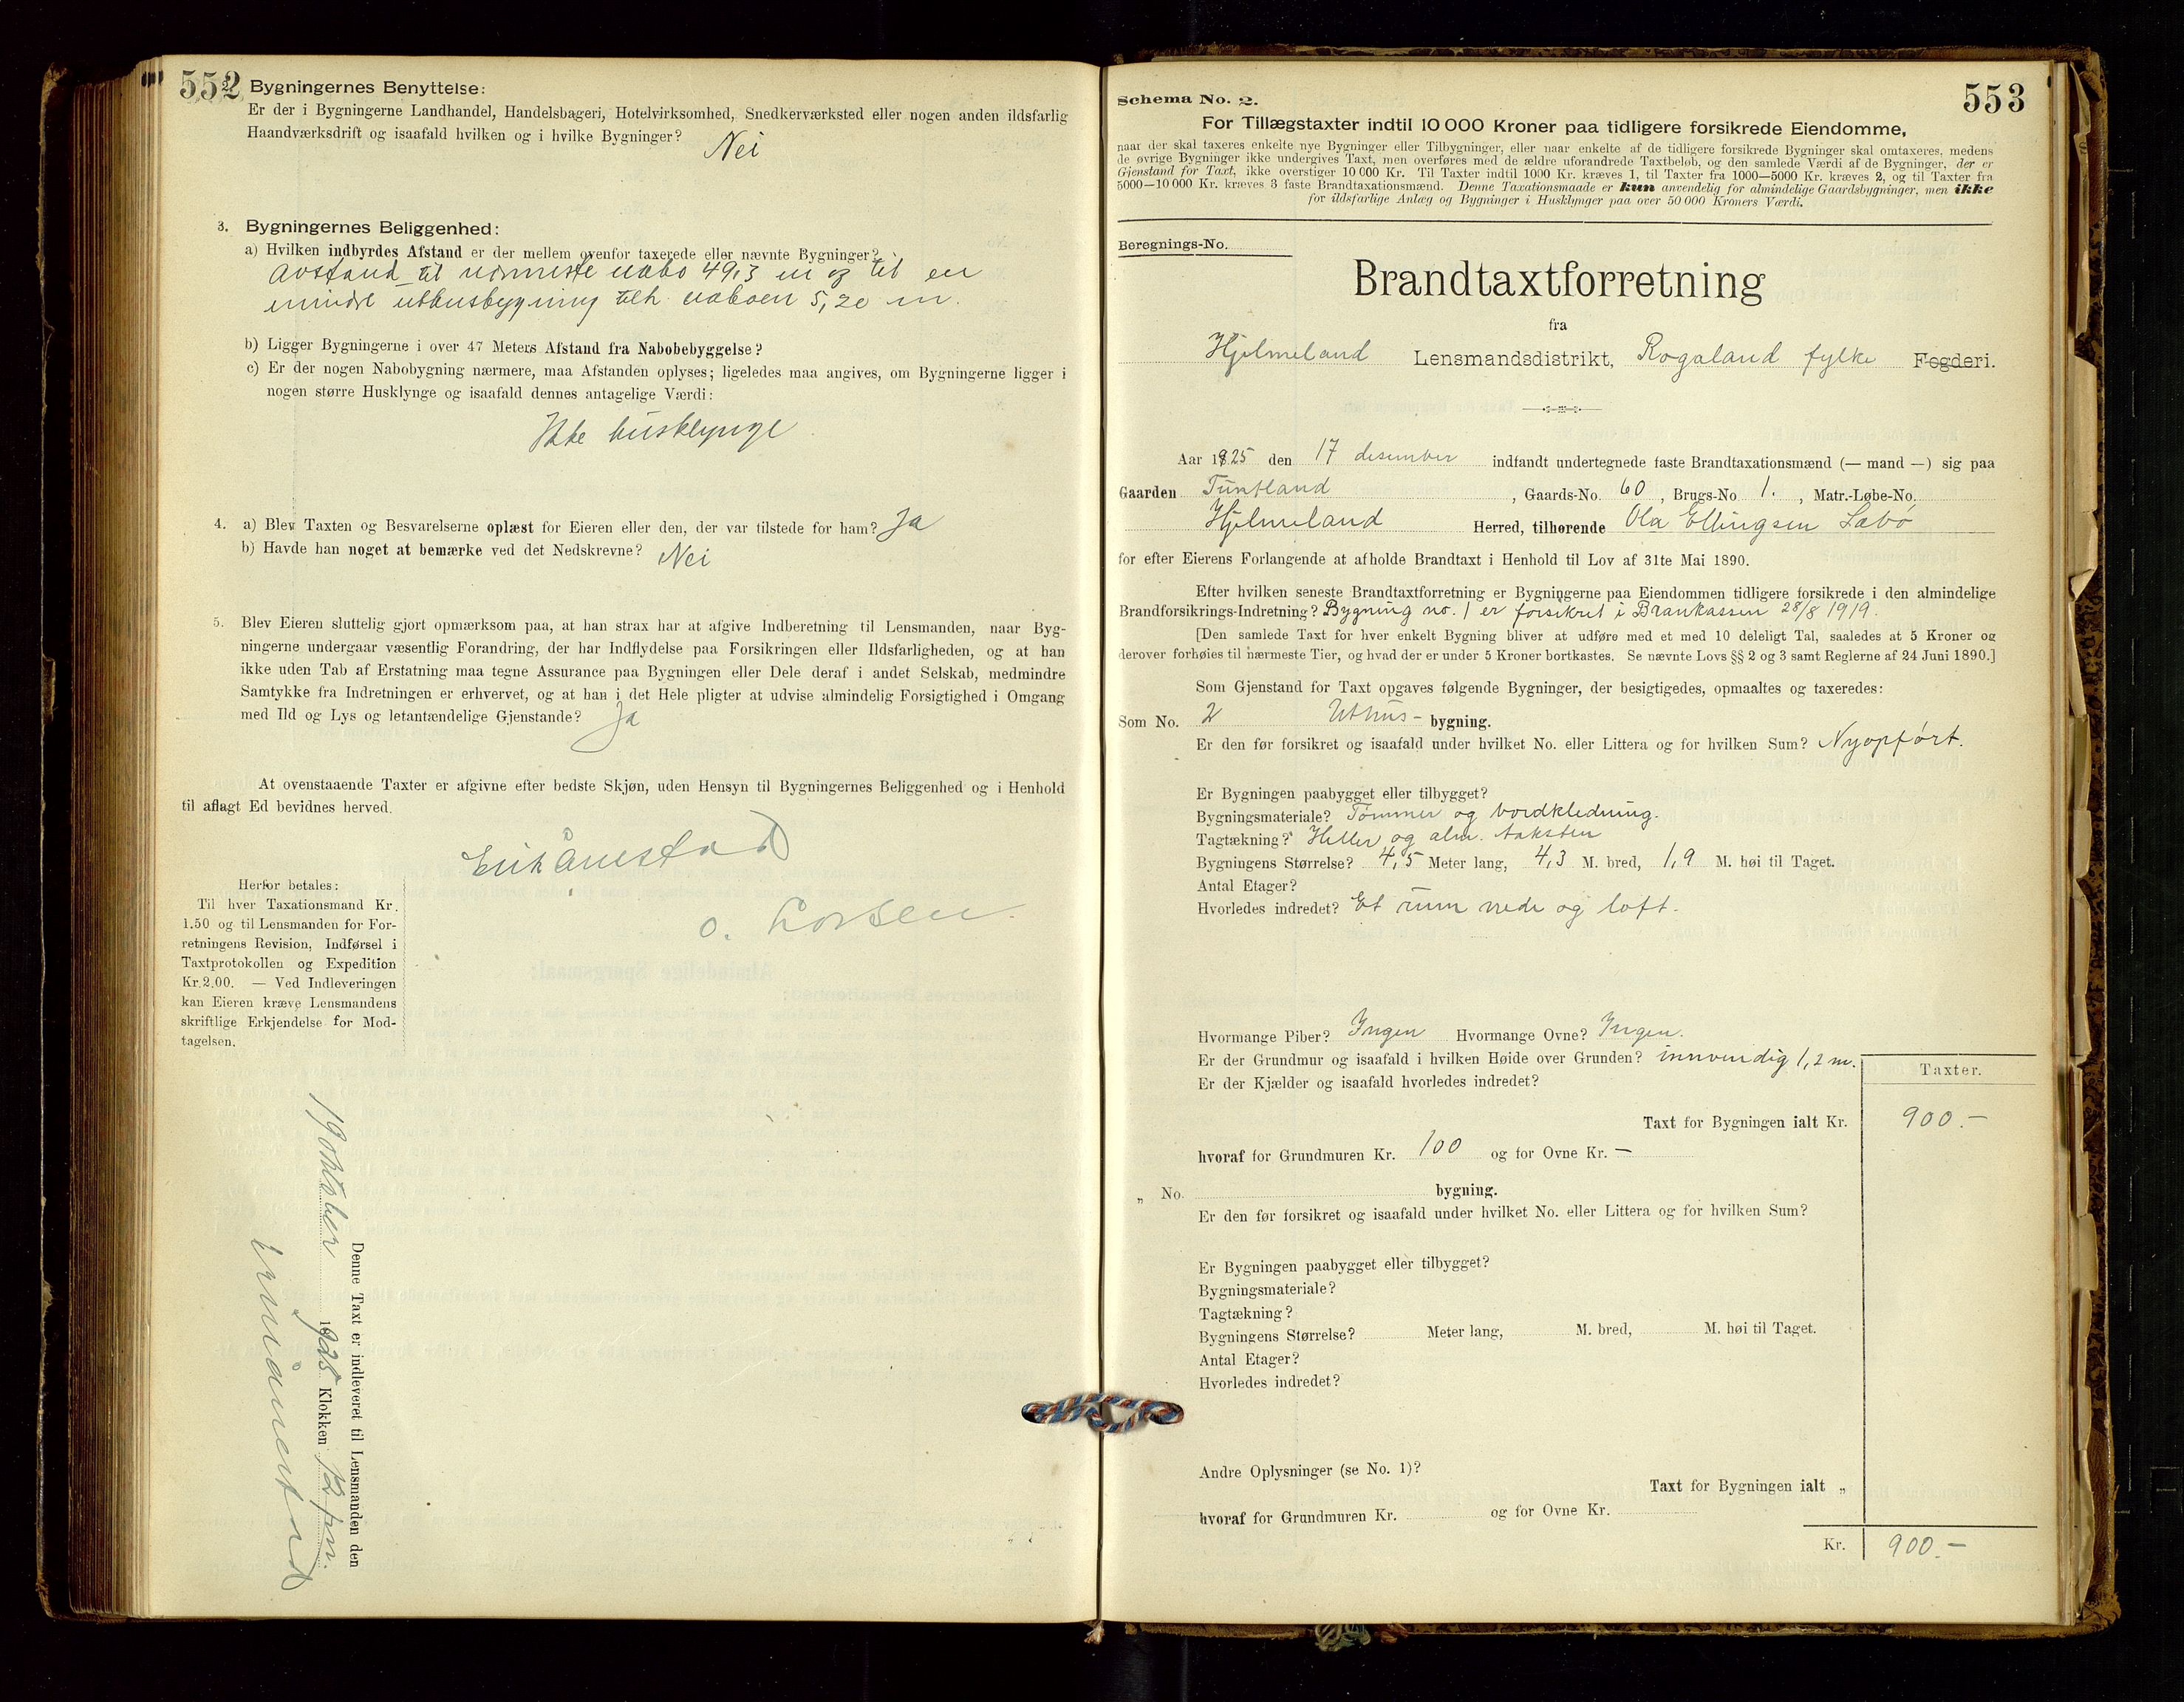 552 Bygningernes Benyttelse:
Er der i Bygningerne Landhandel, Handelsbageri, Hotelvirksomhed, Snedkerværksted eller nogen anden ildsfarlig
Haandværksdrift og isaafald hvilken og i hvilke Bygninger? Nei
3. Bygningernes Beliggenhed:
a) Hvilken indbyrdes Afstand er der mellem ovenfor taxerede eller nævnte Bygninger?
Avstand til nærmeste nabo 49,3 m og til en
mindre uthusbygning tilh. naboen 5,20 m.
b) Ligger Bygningerne i over 47 Meters Afstand fra Nabobebyggelse?
c) Er der nogen Nabobygning nærmere, maa Afstanden oplyses; ligeledes maa angives, om Bygningerne ligger i
nogen større Husklynge og isaafald dennes antagelige Værdi:
Ikke husklynge
4. a) Blev Taxten og Besvarelserne oplæst for Eieren eller den, der var tilstede for ham? Ja
b) Havde han noget at bemærke ved det Nedskrevne? Nei
5. Blev Eieren sluttelig gjort opmærksom paa, at han strax har at afgive Indberetning til Lensmanden, naar Byg-
ningerne undergaar væsentlig Forandring, der har Indflydelse paa Forsikringen eller Ildsfarligheden, og at han
ikke uden Tab af Erstatning maa tegne Assurance paa Bygningen eller Dele deraf i andet Selskab, medmindre
Samtykke fra Indretningen er erhvervet, og at han i det Hele pligter at udvise almindelig Forsigtighed i Omgang
med Ild og Lys og letantændelige Gjenstande? Ja
At ovenstaaende Taxter er afgivne efter bedste Skjøn, uden Hensyn til Bygningernes Beliggenhed og i Henhold
til aflagt Ed bevidnes herved.
Erik Åmestad
O. Larsen.
Herfor betales:
Til hver Taxationsmand Kr.
1.50 og til Lensmanden for For-
retningens Revision, Indførsel i
Taxtprotokollen og Expedition
Kr. 2.00. — Ved Indleveringen
kan Eieren kræve Lensmandens
skriftlige Erkjendelse for Mod-
tagelsen.
Denne Taxt er indleveret til Lensmanden den
19 oktober 1925 Klokken 12 fm.
Åmestad
Schema No. 2. 553
For Tillægstaxter indtil 10 000 Kroner paa tidligere forsikrede Eiendomme,
naar der skal taxeres enkelte nye Bygninger eller Tilbygninger, eller naar enkelte af de tidligere forsikrede Bygninger skal omtaxeres, medens
de øvrige Bygninger ikke undergives Taxt, men overføres med de ældre uforandrede Taxtbeløb, og den samlede Værdi af de Bygninger, der er
Gjenstand for Taxt, ikke overstiger 10 000 Kr. Til Taxter indtil 1000 Kr. kræves 1, til Taxter fra 1000—5000 Kr. kræves 2, og til Taxter fra
5000—10 000 Kr. kræves 3 faste Brandtaxationsmænd. Denne Taxationsmaade er kun anvendelig for almindelige Gaardsbygninger, men ikke
for ildsfarlige Anlæg og Bygninger i Husklynger paa over 50 000 Kroners Værdi.
Beregnings-No.
Brandtaxtforretning
fra
Hjelmeland Lensmandsdistrikt, Rogaland fylke Fogderi.
Aar 1925 den 17 desember indfandt undertegnede faste Brandtaxationsmænd (— mand —) sig paa
Gaarden Tuntland, Gaards-No. 60, Brugs-No 1., Matr.-Løbe-No.
Hjelmeland Herred, tilhørende Ola Ellingsen Sæbø
for efter Eierens Forlangende at afholde Brandtaxt i Henhold til Lov af 31te Mai 1890.
Efter hvilken seneste Brandtaxtforretning er Bygningerne paa Eiendommen tidligere forsikrede i den almindelige
Brandforsikrings-Indretning? Bygning no. 1 er forsikret i Brankassen 28/8 1919.
[Den samlede Taxt for hver enkelt Bygning bliver at udføre med et med 10 deleligt Tal, saaledes at 5 Kroner og
derover forhøies til nærmeste Tier, og hvad der er under 5 Kroner bortkastes. Se nævnte Lovs §§ 2 og 3 samt Reglerne af 24 Juni 1890.]
Som Gjenstand for Taxt opgaves følgende Bygninger, der besigtigedes, opmaaltes og taxeredes:
Som No. 2 Uthus- bygning.
Er den før forsikret og isaafald under hvilket No. eller Littera og for hvilken Sum? Nyopført.
Er Bygningen paabygget eller tilbygget?
Bygningsmateriale? Tømmer og bordkledning.
Tagtækning? Heller og alm. taksten
Bygningens Størrelse? 4,5 Meter lang, 4,3 M. bred, 1,9 M. høi til Taget.
Antal Etager?
Hvorledes indredet? Et rum nede og loft.
Hvormange Piber? Ingen Hvormange Ovne? Ingen.
Er der Grundmur og isaafald i hvilken Høide over Grunden? innvendig 1,2 m.
Er der Kjælder og isaafald hvorledes indredet?
Taxter.
Taxt for Bygningen ialt Kr. 900.-
hvoraf for Grundmuren Kr. 100 og for Ovne Kr. —
„ No. bygning.
Er den før forsikret og isaafald under hvilket No. eller Littera og for hvilken Sum?
Er Bygningen paabygget eller tilbygget?
Bygningsmateriale?
Tagtækning?
Bygningens Størrelse? Meter lang, M. bred, M. høi til Taget.
Antal Etager?
Hvorledes indredet?
Andre Oplysninger (se No. 1)?
Taxt for Bygningen ialt „
hvoraf for Grundmuren Kr. og for Ovne Kr.
Kr. 900.-